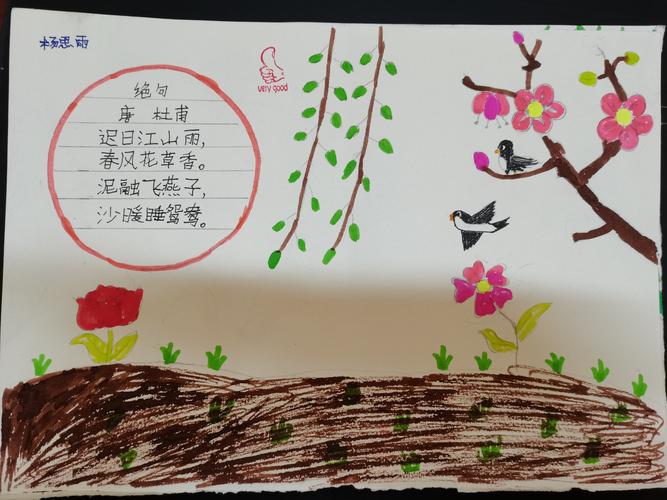 杨思雨
绝句
唐 杜甫
迟日江山雨,
春风花草香。
泥融飞燕子,
沙暖睡鸳鸯。
very good